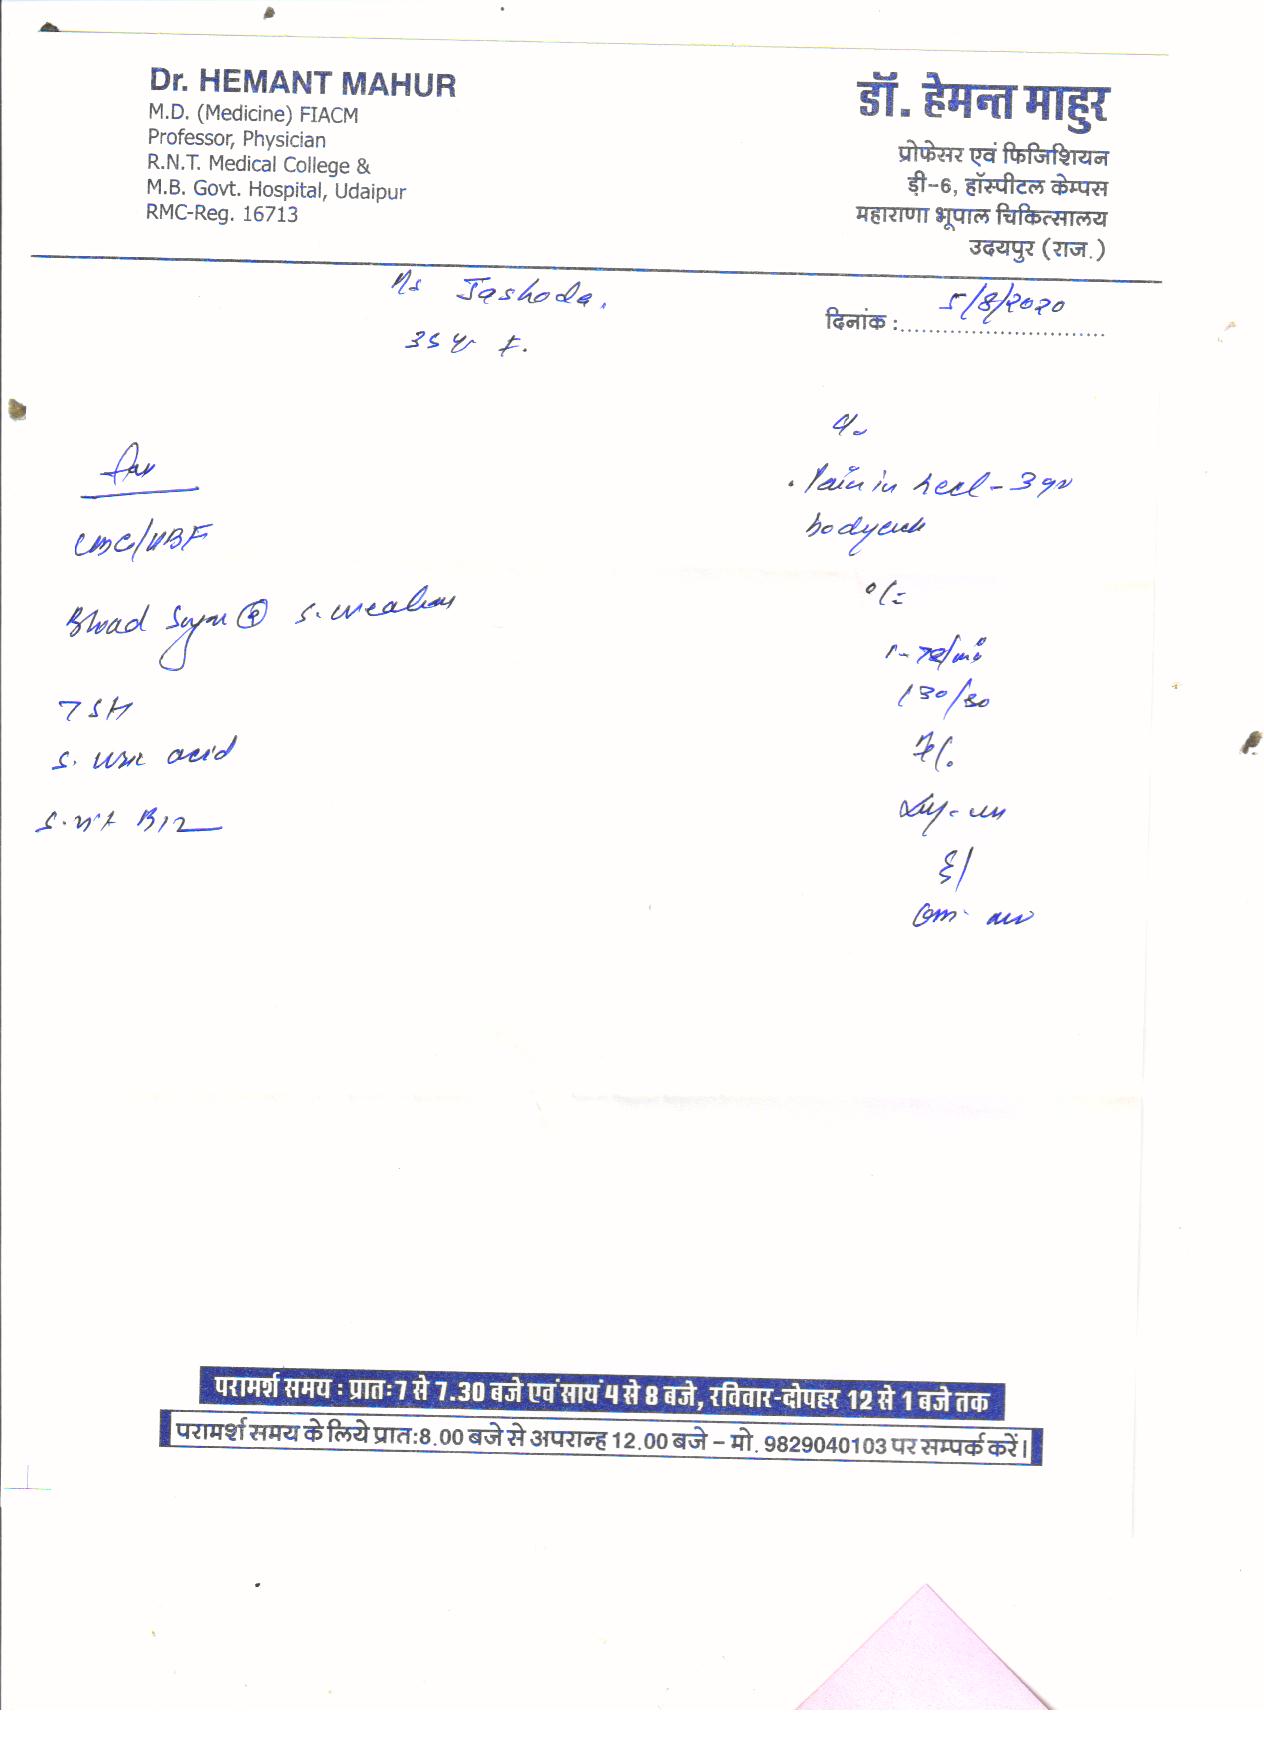 Dr. HEMANT MAHUR
M.D. (Medicine) FIACM
Professor, Physician
R.N.T. Medical College &
M.B. Govt. Hospital, Udaipur
RMC-Reg. 16713
डॉ. हेमन्त माहुर
प्रोफेसर एवं फिजिशियन
डी-6, हॉस्पीटल केम्पस
महाराणा भूपाल चिकित्सालय
उदयपुर (राज.)
Jashoda.
दिनांक : 5/8/2020
35 y F.
Pain in heel - 3
Blood S.
TSH
S. acid
S. B12
130/80
परामर्श समय : प्रातः 7 से 7.30 बजे एवं सायं 4 से 8 बजे, रविवार-दोपहर 12 से 1 बजे तक
परामर्श समय के लिये प्रात:8.00 बजे से अपरान्ह 12.00 बजे – मो. 9829040103 पर सम्पर्क करें।